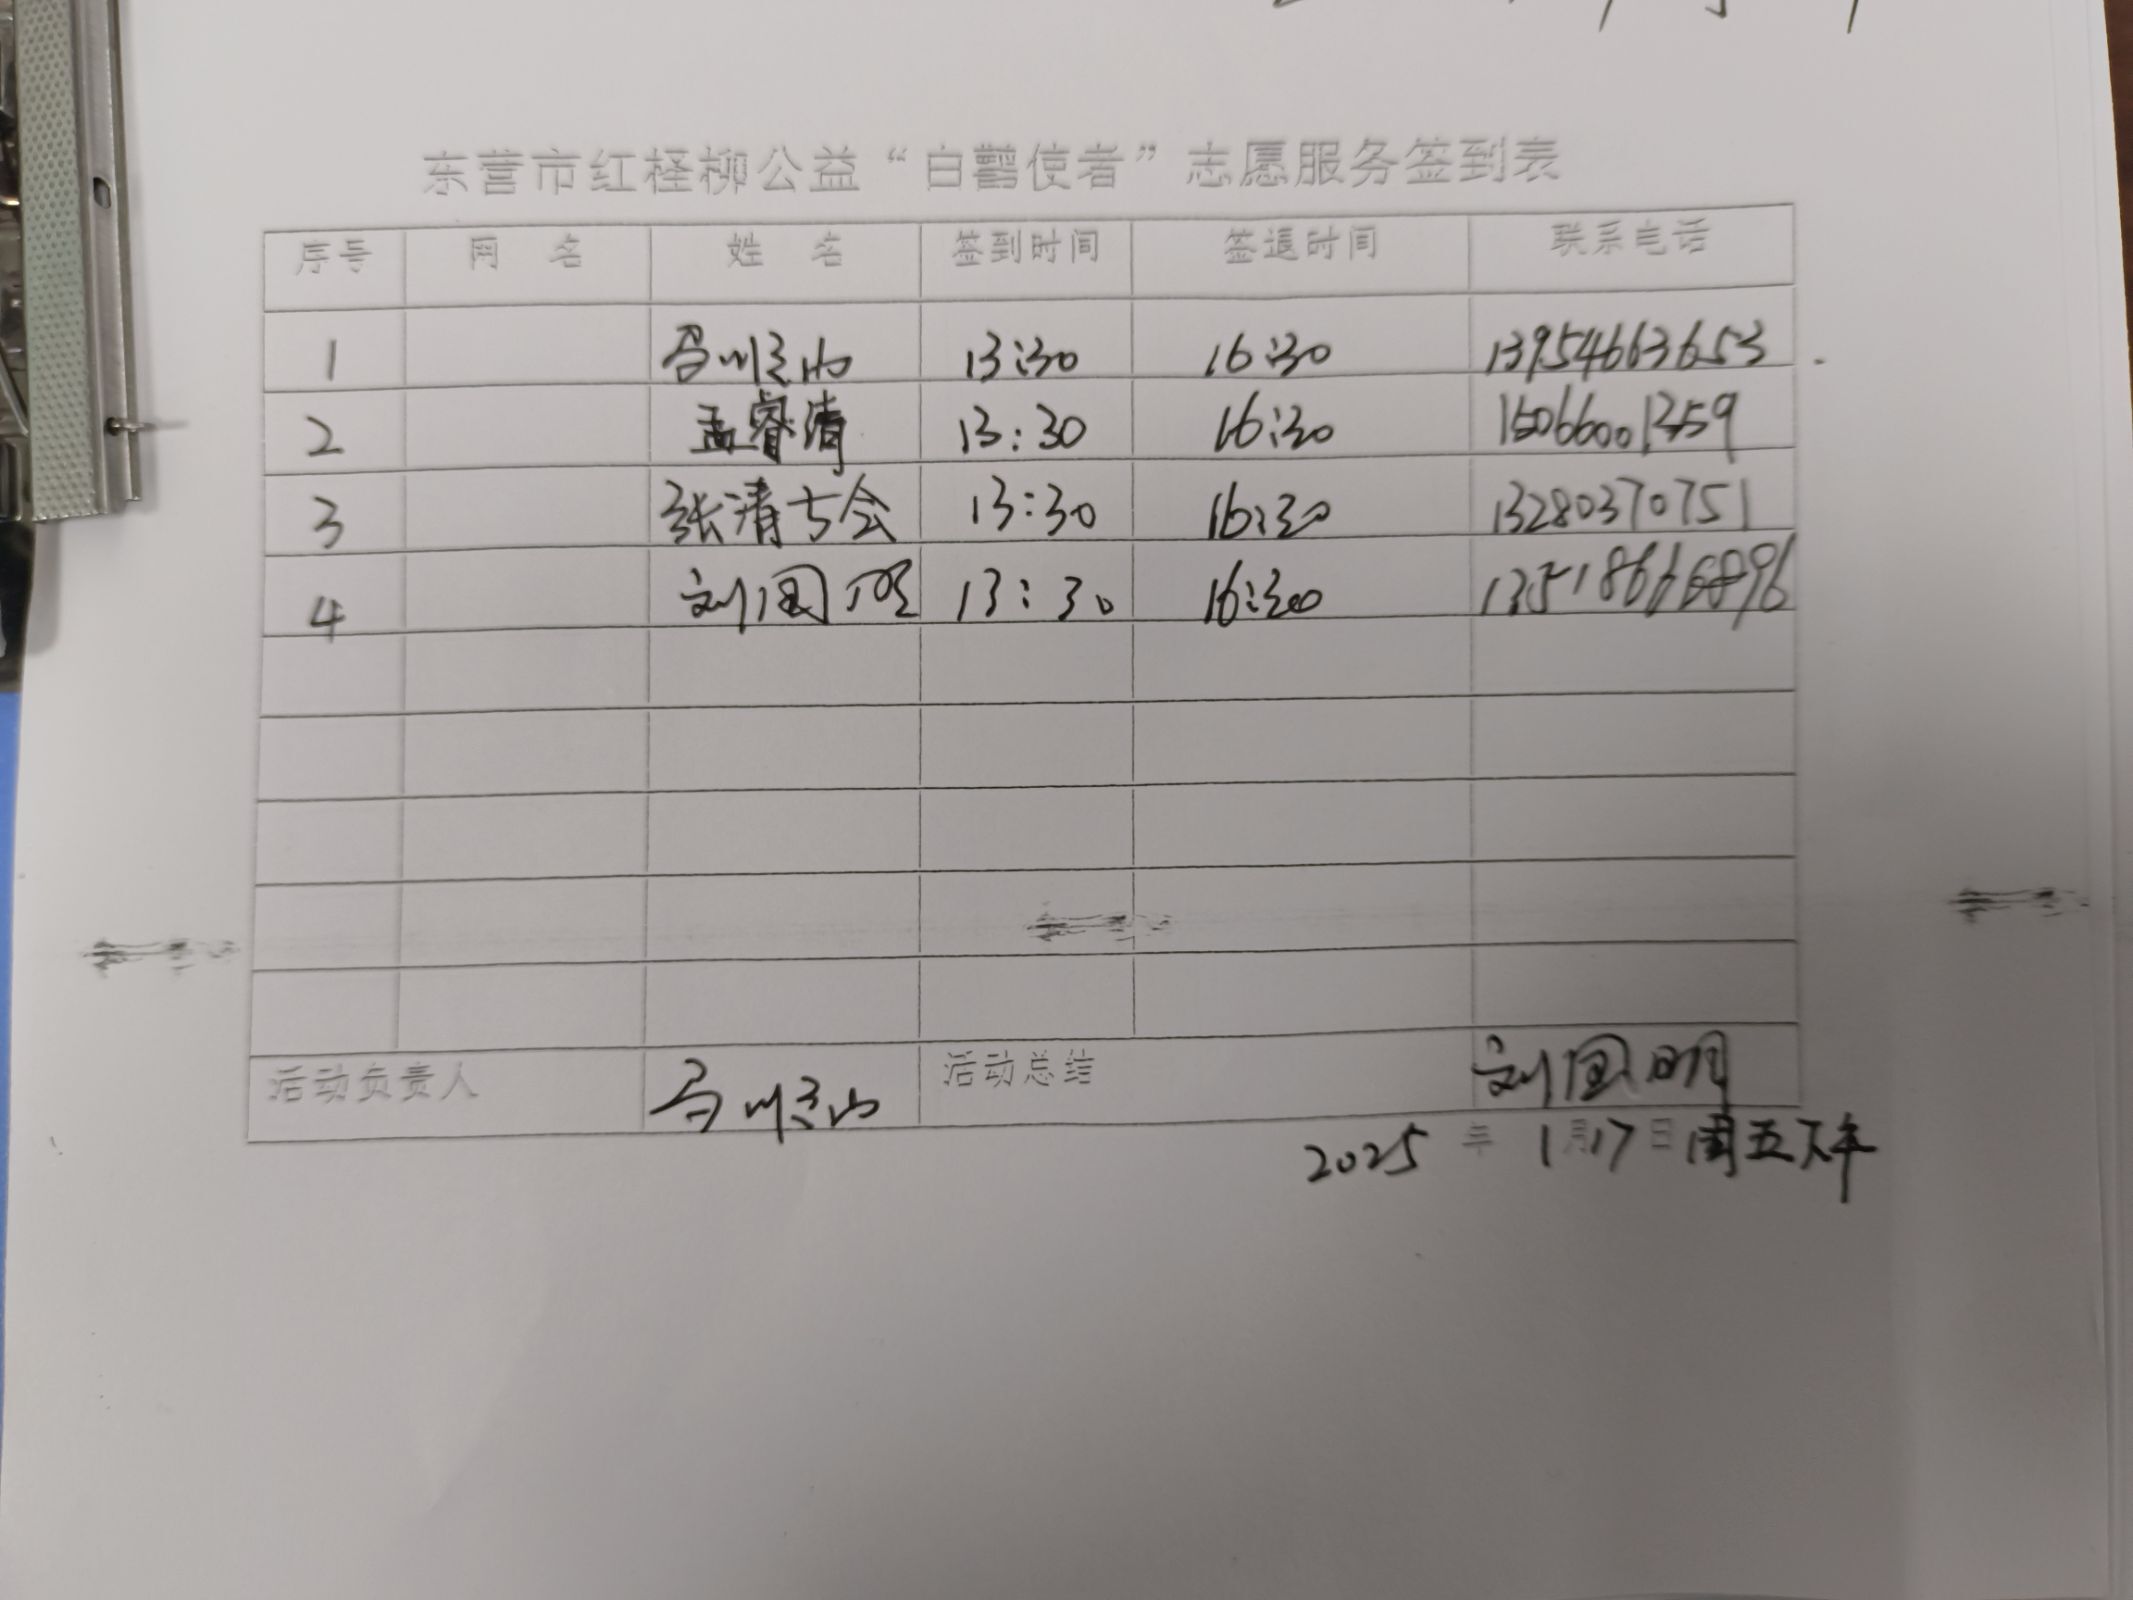 东营市红柽柳公益“白鹳使者”志愿服务签到表
序号 网 名 姓 名 签到时间 签退时间 联系电话
1 马顺山 13:30 16:30 13954663653
2 孟睿清 13:30 16:30 15066001359
3 张清 13:30 16:30 13280370751
4 刘国明 13:30 16:30
活动负责人 马顺山 活动总结 刘国明
2025 年 1月17日周五下午